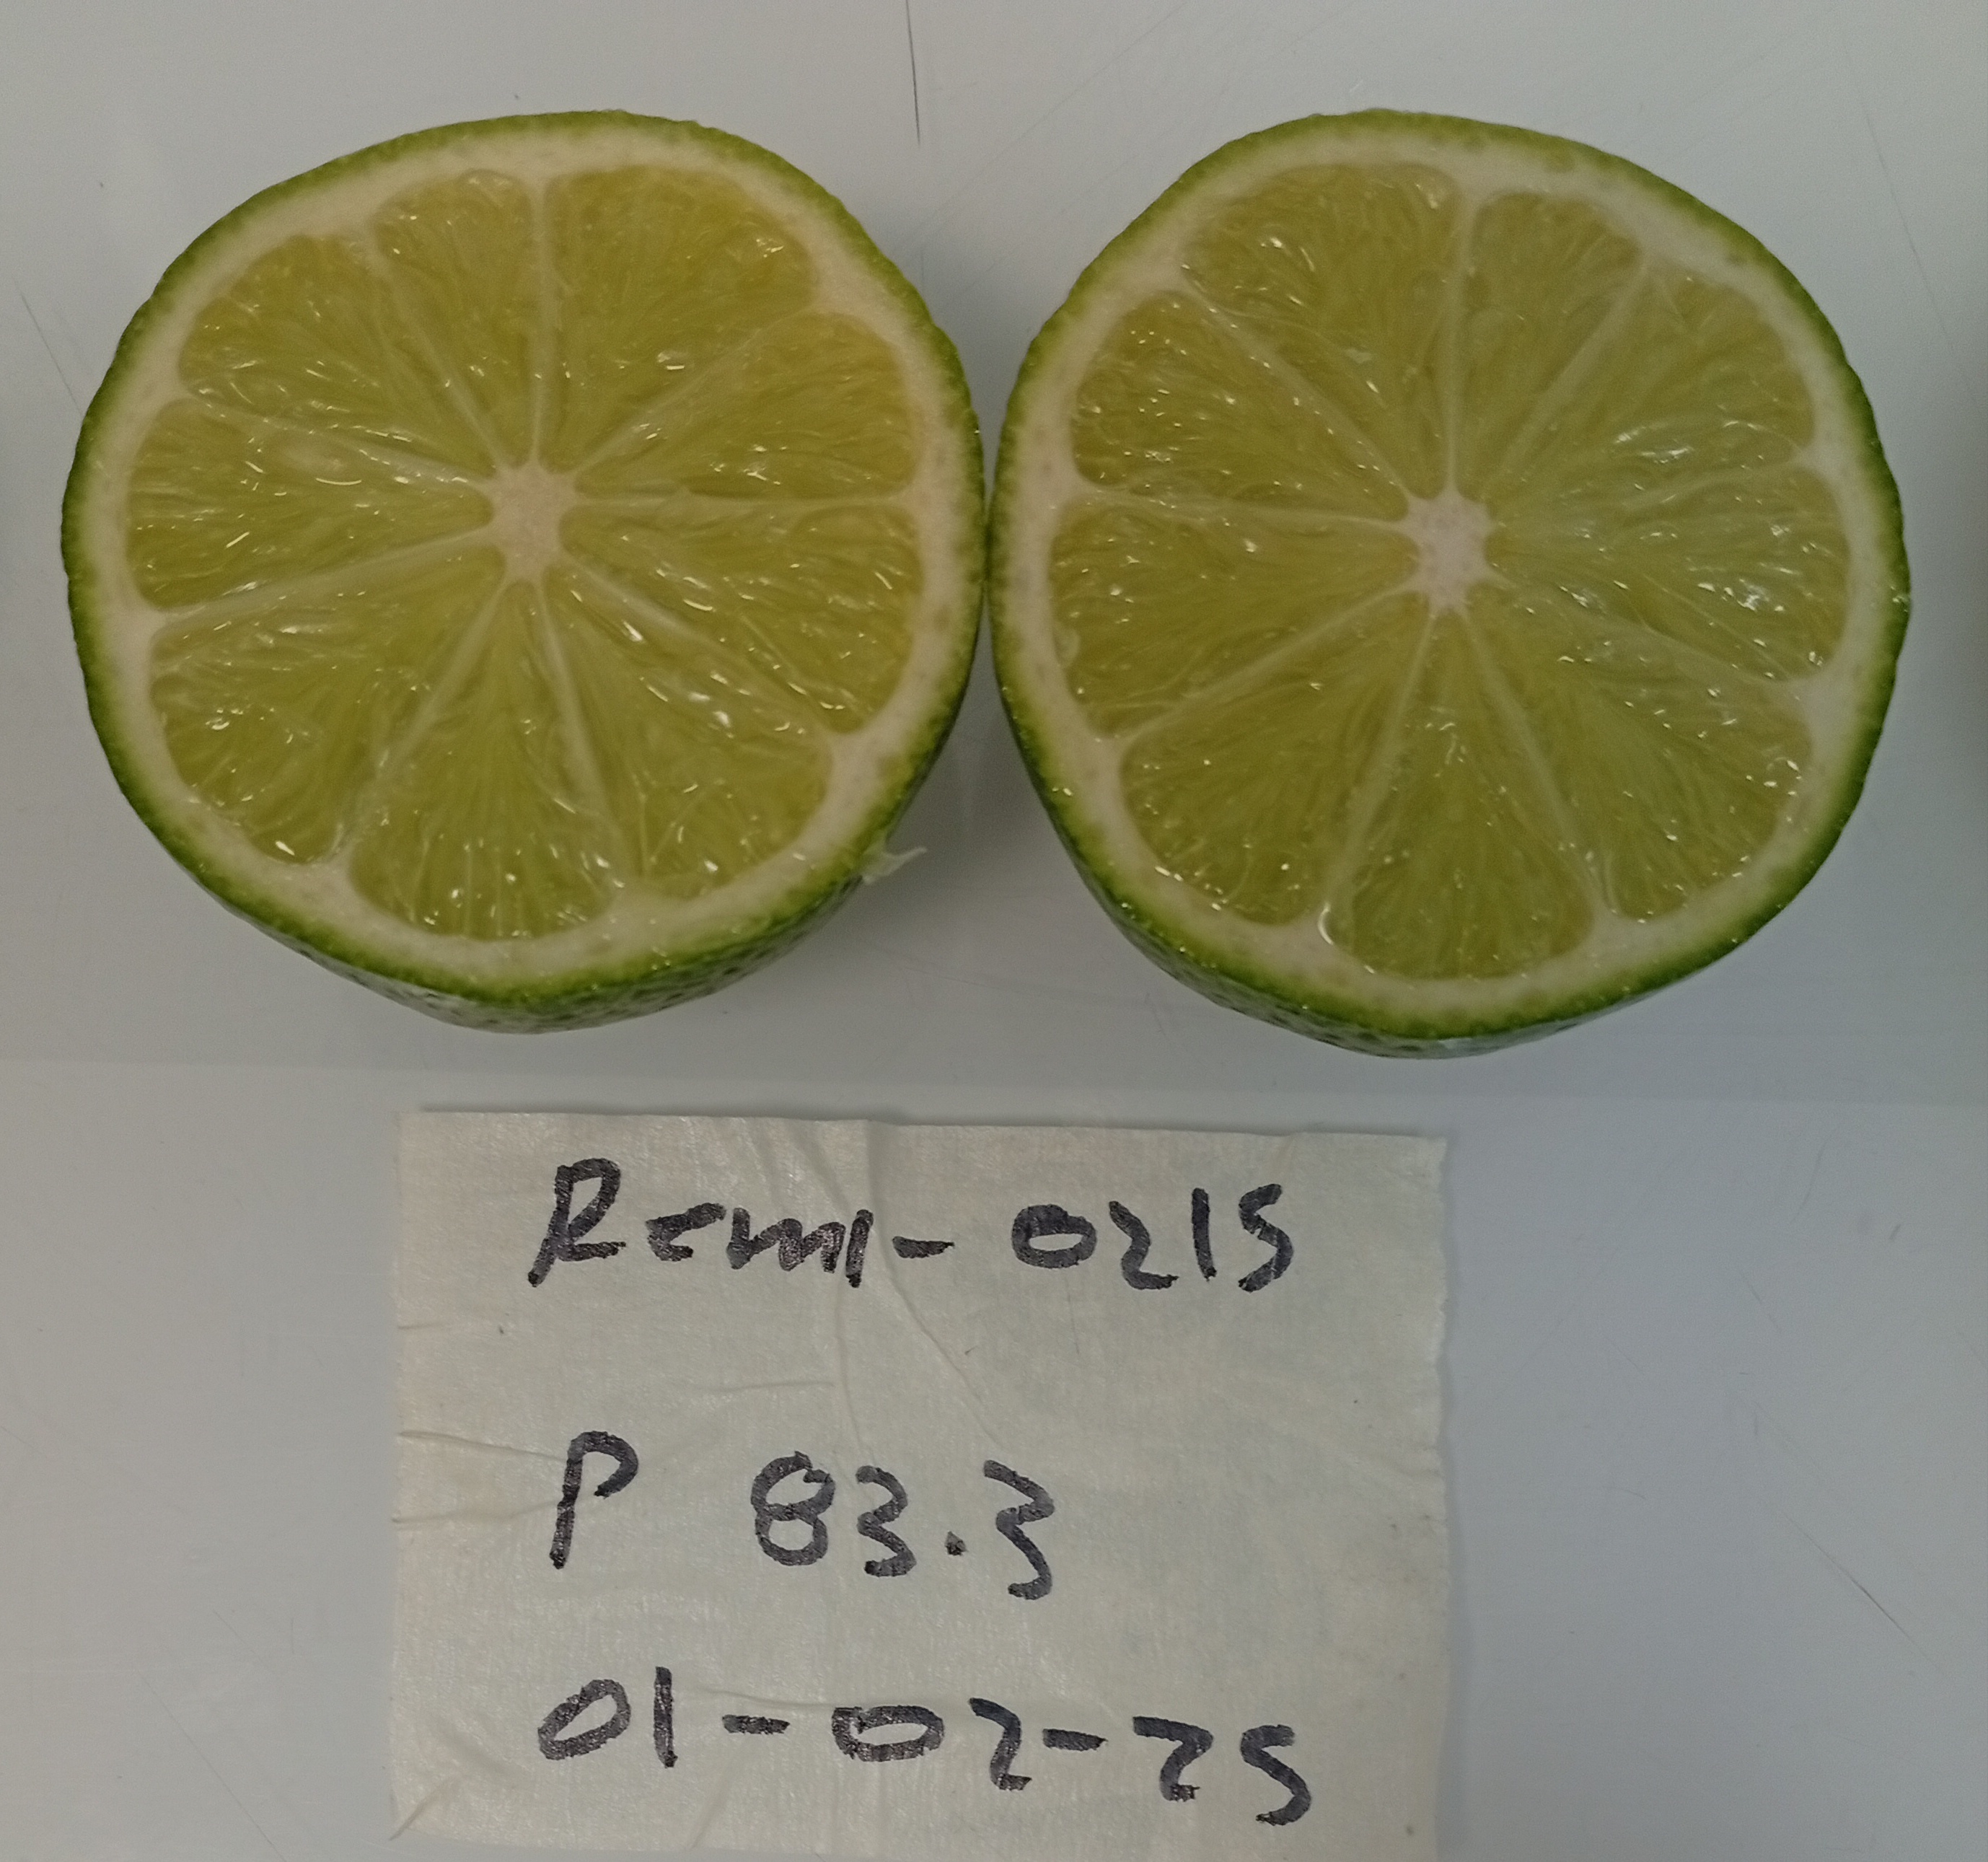 Remi-0215
P 83.3
01-02-25